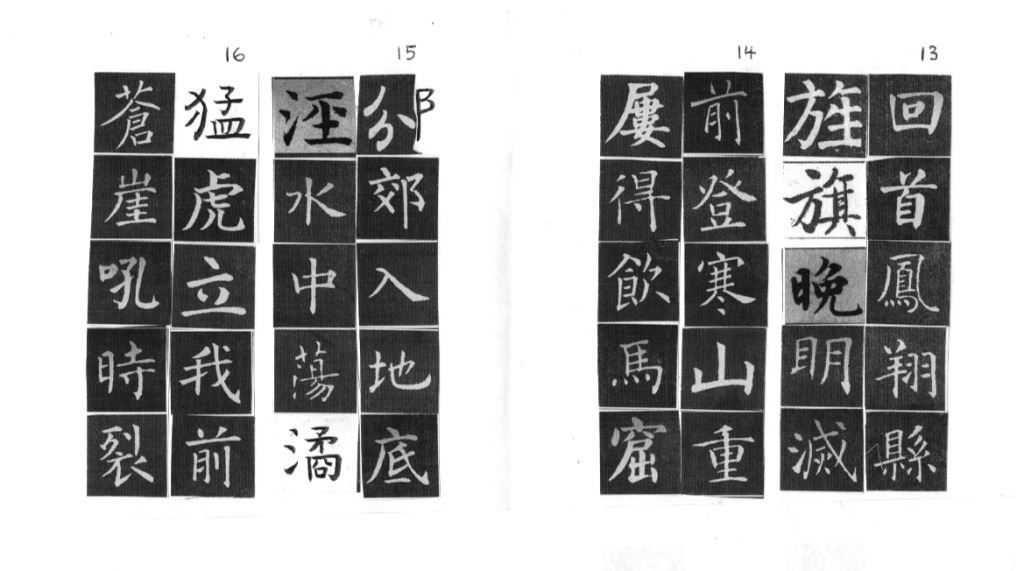 13
回首鳳翔縣
旌旗晚眀滅
14
前登寒山重
屢得飲馬窟
15
邠郊入地底
涇水中蕩潏
16
猛虎立我前
蒼崖吼時裂